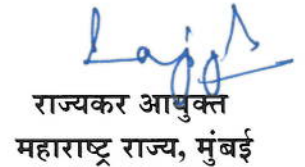 राज्यकर आयुक्त
महाराष्ट्र राज्य, मुंबई